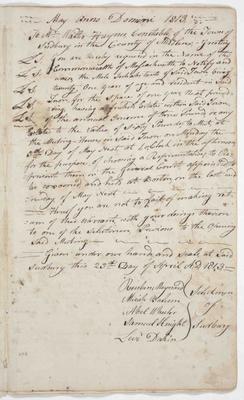 May Anno Domini 1813
To Mr. Watts Haynes Constable of the Town of
Sudbury in the County of Middlesex Greeting
L.S. You are hereby required in the Name of the
Commonwealth of Massachusetts to Notify and
L.S. warn the Male Inhabitants of Said Town being
twenty One years of age and resident in said
L.S. Town for the Space of One year next preceding
having a freehold Estate within Said Town
L.S. of the annual Income of three Pounds or any
Estate to the Value of Sixty Pounds to Meet at
L.S. the Meeting-House in Said Town on Monday the
Day of May Next at o'Clock in the afternoon
for the purpose of choosing a Representative to Re-
present them in the General Court appointed to
be convened and held at Boston on the last Wed-
nesday of May Next
Hereof you are not to fail of making return
of this Warrant with your doings thereon
to one of the Selectmen Previous to the Opening
Said Meeting
Given under our hands and Seals at Said
Sudbury this 23rd Day of April AD 1813
Reuben Maynard
Abel Wheeler
Samuel Knight
Levi Dakin
Selectmen
of
Sudbury